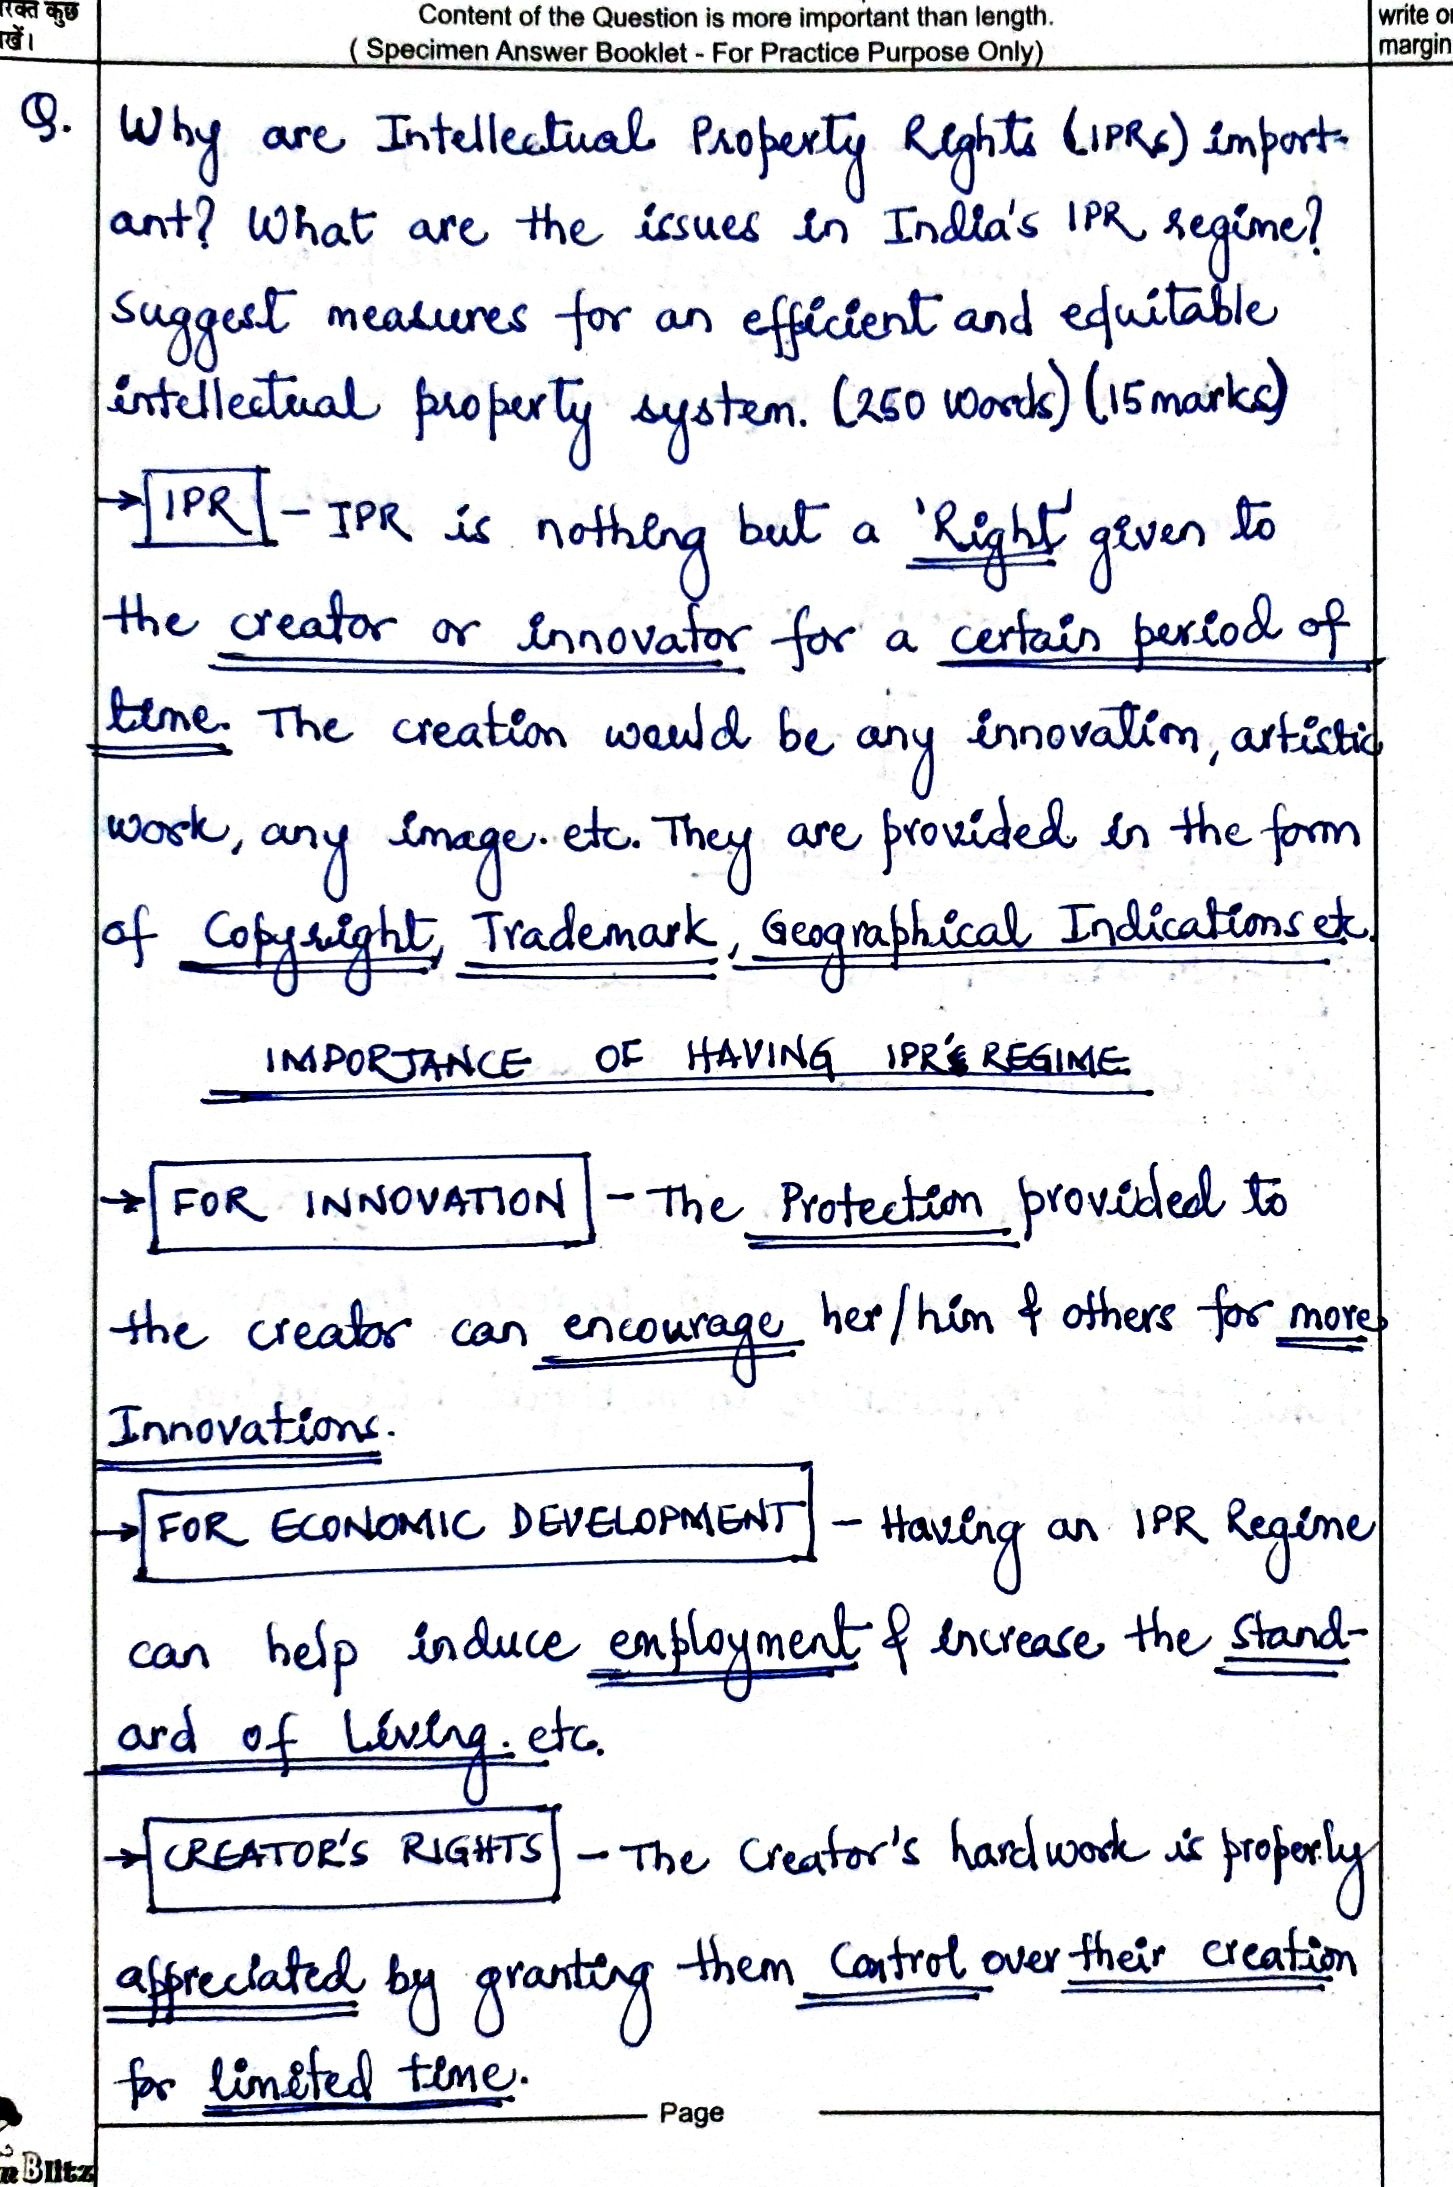 रिक्त कुछ
खें।
Content of the Question is more important than length.
( Specimen Answer Booklet - For Practice Purpose Only)
write
margin
Q. Why are Intellectual Property Rights (IPRs) import-
ant? What are the issues in India's IPR regime?
Suggest measures for an efficient and equitable
intellectual property system. (250 words) (15 marks)
→ IPR - IPR is nothing but a 'Right' given to
the creator or innovator for a certain period of
time. The creation would be any innovation, artistic
work, any image. etc. They are provided in the form
of Copyright, Trademark, Geographical Indications etc.
IMPORTANCE OF HAVING IPR'S REGIME
→ FOR INNOVATION - The Protection provided to
the creator can encourage her/him & others for more
Innovations.
→ FOR ECONOMIC DEVELOPMENT - Having an IPR Regime
can help induce employment & increase the stand-
ard of Living. etc.
→ CREATOR'S RIGHTS - The Creator's hardwork is properly
appreciated by granting them Control over their creation
for limited time.
Page
Blitz